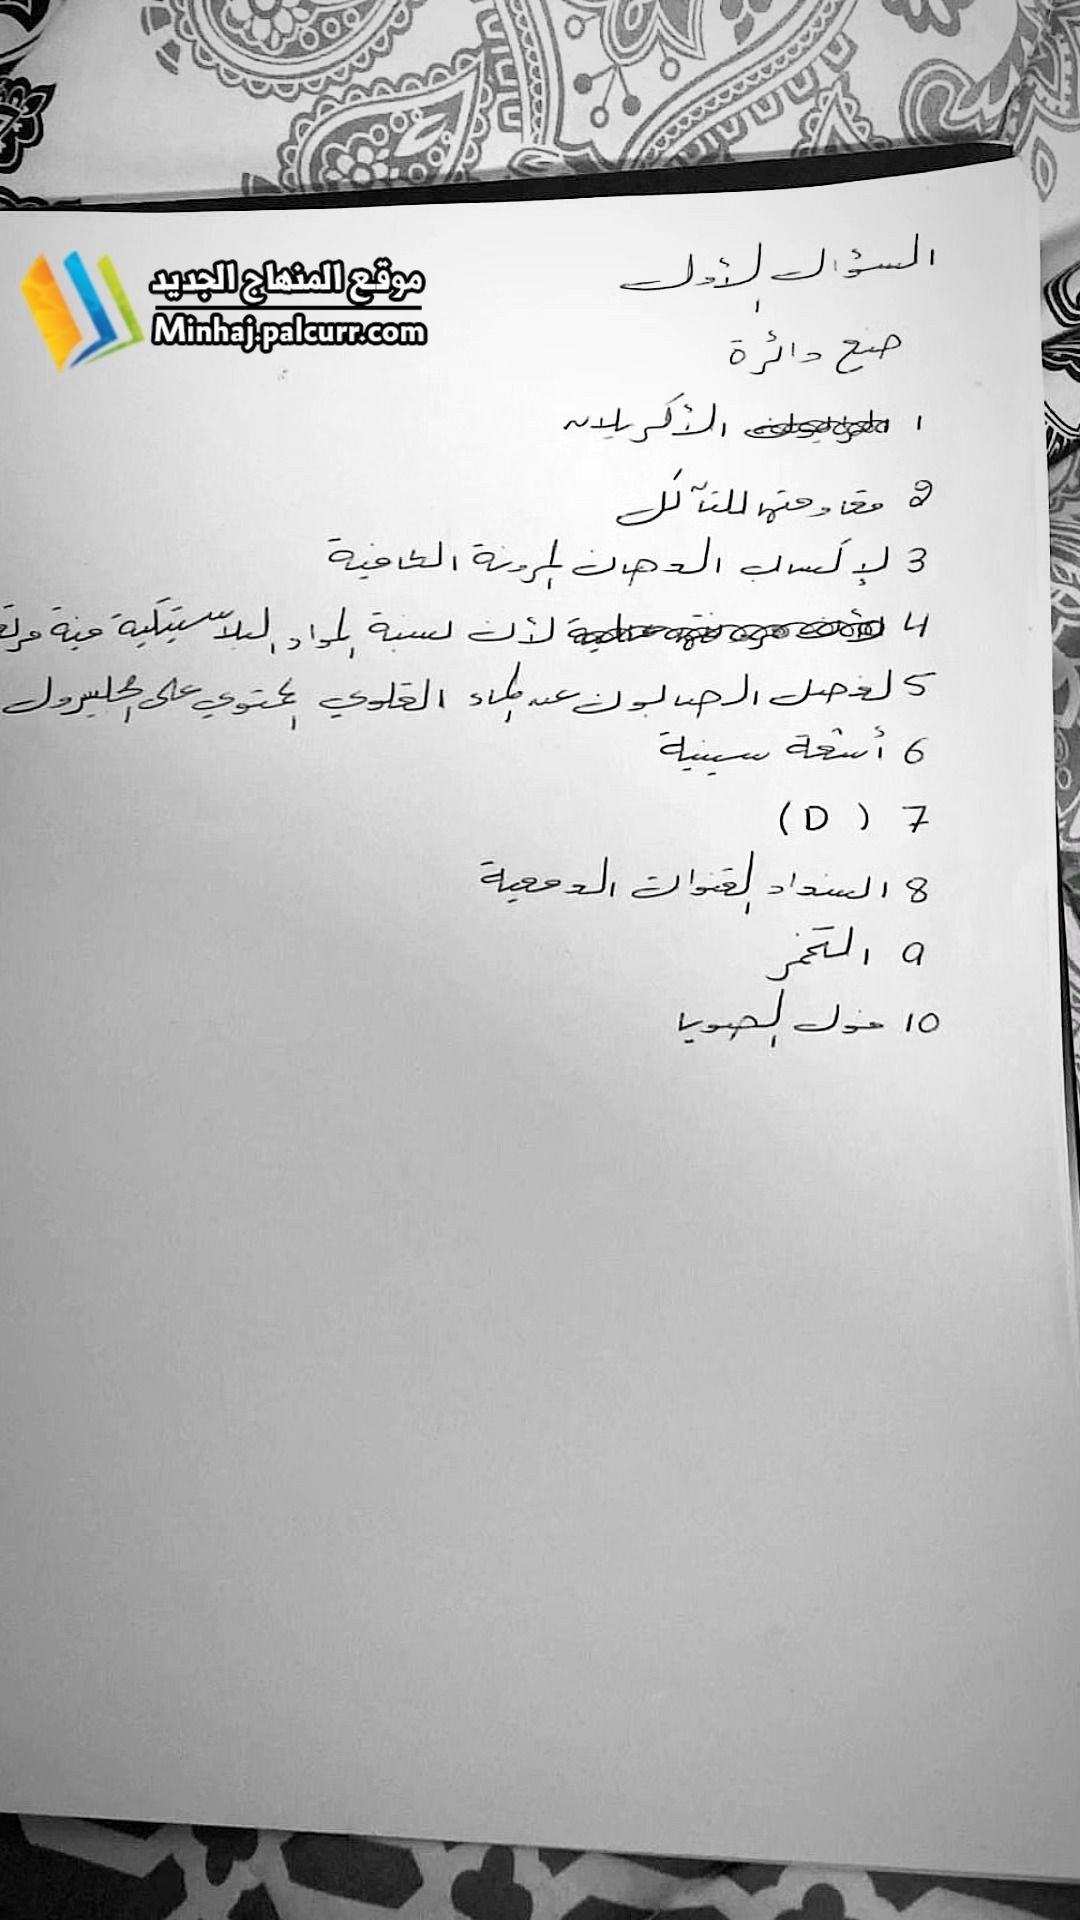 موقع المنهاج الجديد
Minhaj.palcurr.com
السؤال الأول
ضع دائرة
1 الأكريلات
2 مقاومتها للتآكل
3 لإكساب الدهان المرونة الكافية
4 لأن نسبة المواد البلاستيكية فيه مرتفع
5 لفصل الصابون عن الماء القلوي المحتوي على الجليسرول
6 أشعة سينية
7 ( D )
8 انسداد القنوات الدمعية
9 التخمر
10 فول الصويا